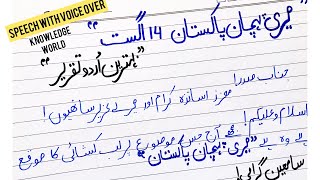 SPEECH WITH VOICE OVER
KNOWLEDGE
WORLD
"میری پہچان پاکستان 14 اگست"
"بہترین اُردو تقریر"
جناب صدر! معزز اساتذہ کرام اور میرے عزیز ساتھیوں!
اسلام وعلیکم! مجھے آج جس موضوع پر لب کشائی کا موقع
ہے وہ ہے "میری پہچان پاکستان"
سامعین گرامی!